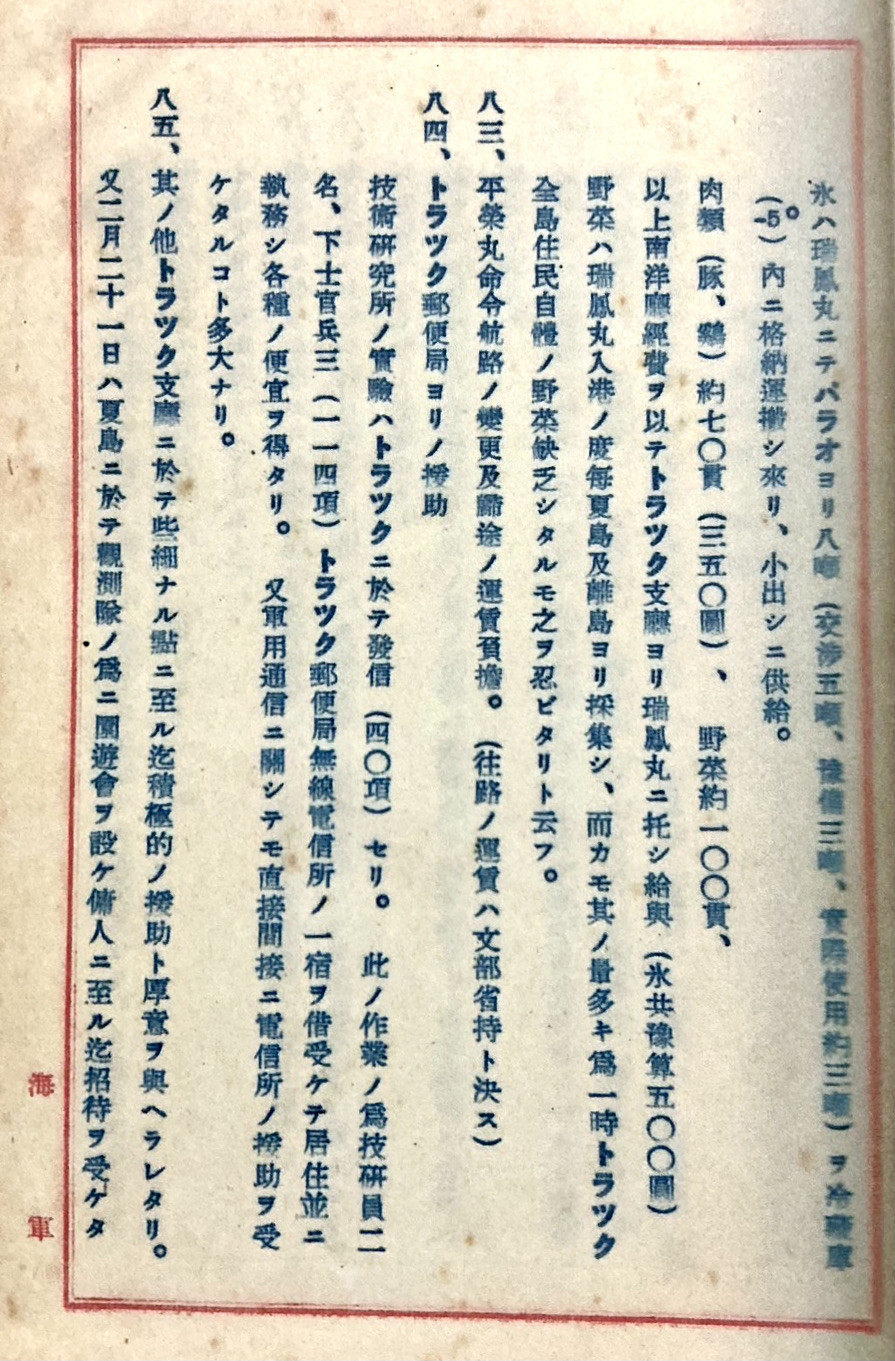 氷ハ瑞鳳丸ニテパラオヨリ八噸（交渉五噸、豫備三噸、實際使用約三噸）ヲ冷藏庫
（-5°）內ニ格納運搬シ來リ、小出シニ供給。
肉類（豚、鷄）約七〇貫（三五〇圓）、　野菜約一〇〇貫、
以上南洋廳經費ヲ以テトラツク支廳ヨリ瑞鳳丸ニ托シ給與（氷共豫算五〇〇圓）
野菜ハ瑞鳳丸入港ノ度每夏島及離島ヨリ採集シ、而カモ其ノ量多キ爲一時トラツク
全島住民自體ノ野菜缺乏シタルモ之ヲ忍ビタリト云フ。
八三、平榮丸命令航路ノ變更及歸途ノ運賃負擔。（往路ノ運賃ハ文部省持ト決ス）
八四、トラツク郵便局ヨリノ援助
技術硏究所ノ實驗ハトラツクニ於テ發信（四〇項）セリ。　此ノ作業ノ爲技硏員二
名、下士官兵三（一一四項）トラツク郵便局無線電信所ノ一宿ヲ借受ケテ居住並ニ
執務シ各種ノ便宜ヲ得タリ。　又軍用通信ニ關シテモ直接間接ニ電信所ノ援助ヲ受
ケタルコト多大ナリ。
八五、其ノ他トラツク支廳ニ於テ些細ナル點ニ至ル迄積極的ノ援助ト厚意ヲ與ヘラレタリ。
又二月二十一日ハ夏島ニ於テ觀測隊ノ爲ニ園遊會ヲ設ケ傭人ニ至ル迄招待ヲ受ケタ
海軍